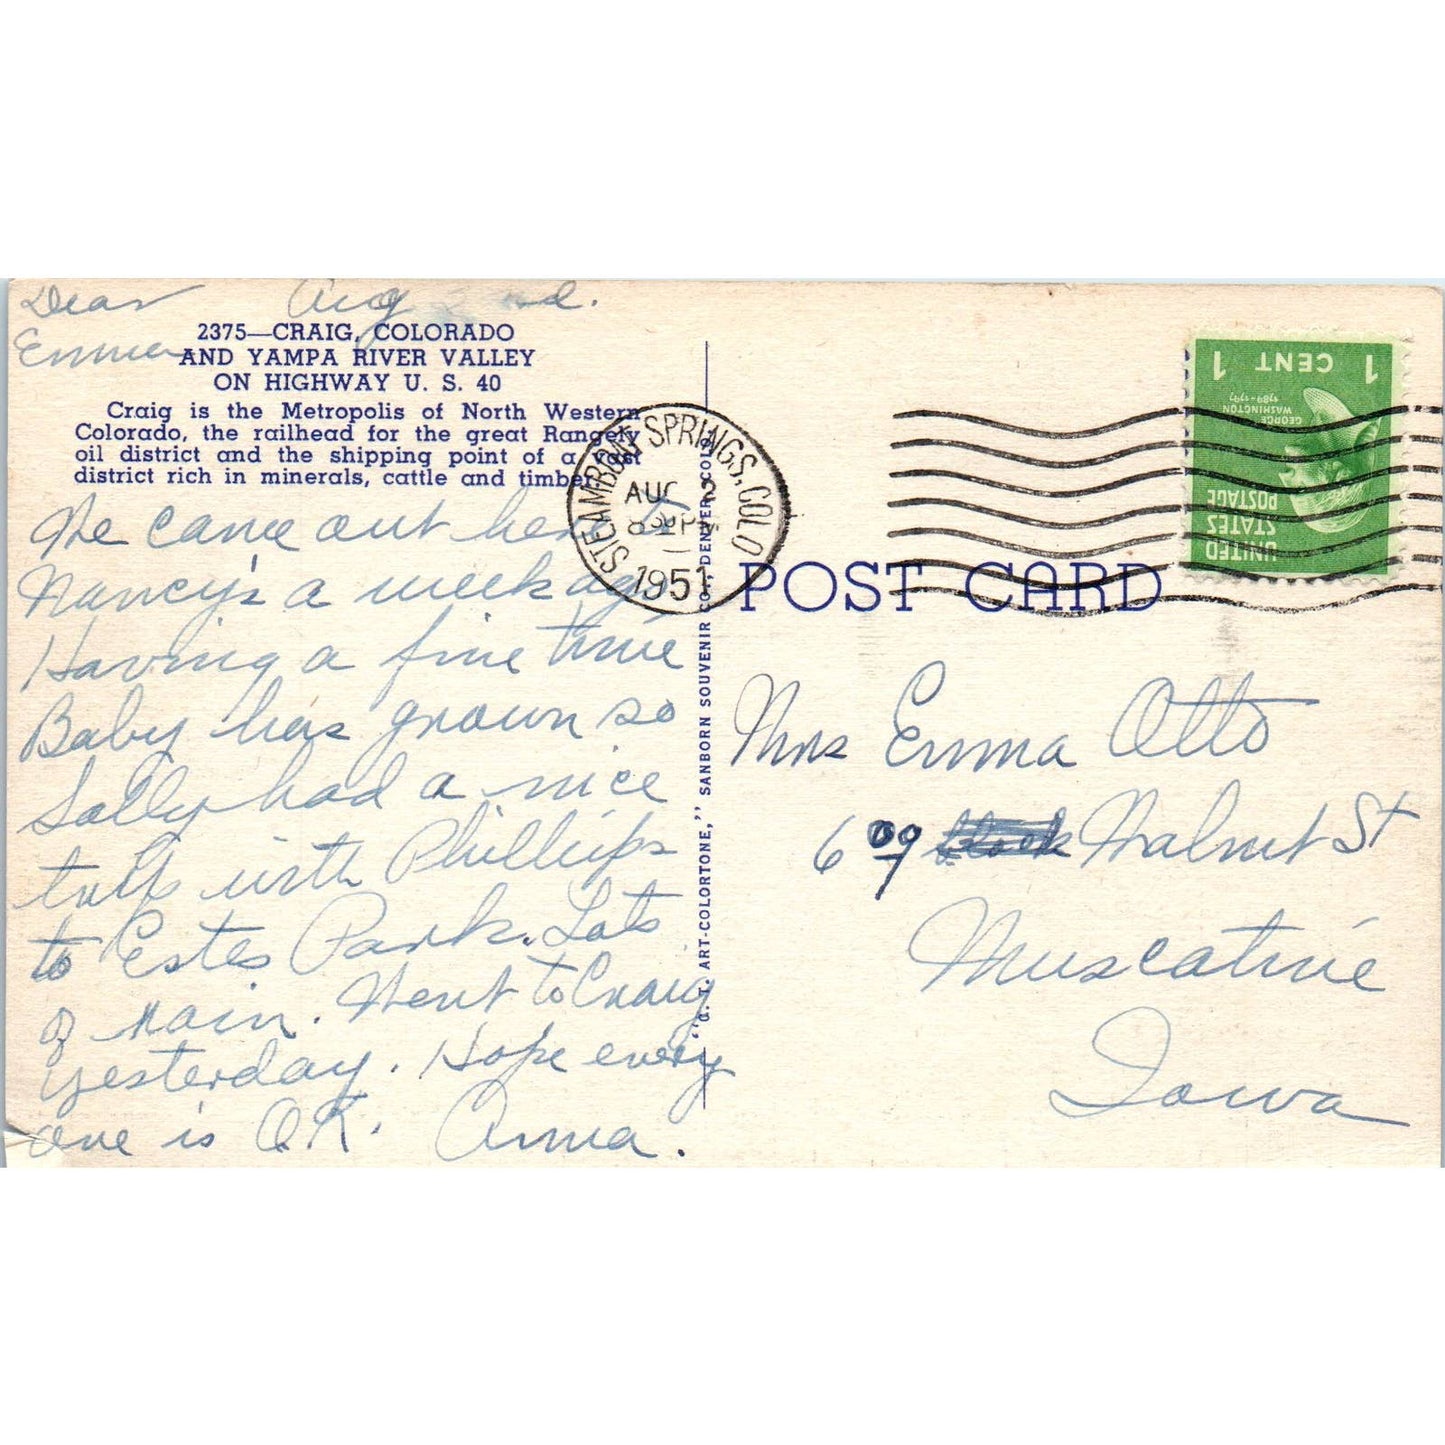 Dear Aug 2nd.
Emma
2375—CRAIG, COLORADO
AND YAMPA RIVER VALLEY
ON HIGHWAY U. S. 40
Craig is the Metropolis of North Western
Colorado, the railhead for the great Rangely
oil district and the shipping point of a vast
district rich in minerals, cattle and timber.
We came out here to
Nancy's a week ago
Having a fine time
Baby has grown so
Sally had a nice
talk with Phillips
to Estes Park. Lots
of rain. Went to Craig
yesterday. Hope every
one is O.K. Anna.
STEAMBOAT SPRINGS, COLO
AUG 2
8 30 PM
1951
"C. T. ART-COLORTONE," SANBORN SOUVENIR CO., DENVER, COLO.
1 CENT 1
GEORGE
WASHINGTON
1789-1797
UNITED
STATES
POSTAGE
POST CARD
Mrs Emma Otto
609 Walnut St
Muscatine
Iowa